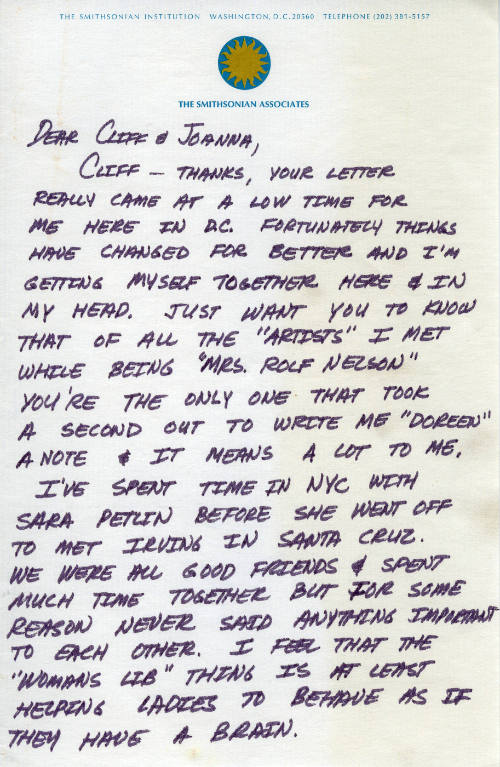 THE SMITHSONIAN INSTITUTION WASHINGTON, D.C. 20560 TELEPHONE (202) 381-5157
THE SMITHSONIAN ASSOCIATES
DEAR CLIFF & JOANNA,
CLIFF — THANKS, YOUR LETTER
REALLY CAME AT A LOW TIME FOR
ME HERE IN D.C. FORTUNATELY THINGS
HAVE CHANGED FOR BETTER AND I'M
GETTING MYSELF TOGETHER HERE & IN
MY HEAD. JUST WANT YOU TO KNOW
THAT OF ALL THE "ARTISTS" I MET
WHILE BEING "MRS. ROLF NELSON"
YOU'RE THE ONLY ONE THAT TOOK
A SECOND OUT TO WRITE ME "DOREEN"
A NOTE & IT MEANS A LOT TO ME.
I'VE SPENT TIME IN NYC WITH
SARA PETLIN BEFORE SHE WENT OFF
TO MET IRVING IN SANTA CRUZ.
WE WERE ALL GOOD FRIENDS & SPENT
MUCH TIME TOGETHER BUT FOR SOME
REASON NEVER SAID ANYTHING IMPORTANT
TO EACH OTHER. I FEEL THAT THE
"WOMANS LIB" THING IS AT LEAST
HELPING LADIES TO BEHAVE AS IF
THEY HAVE A BRAIN.